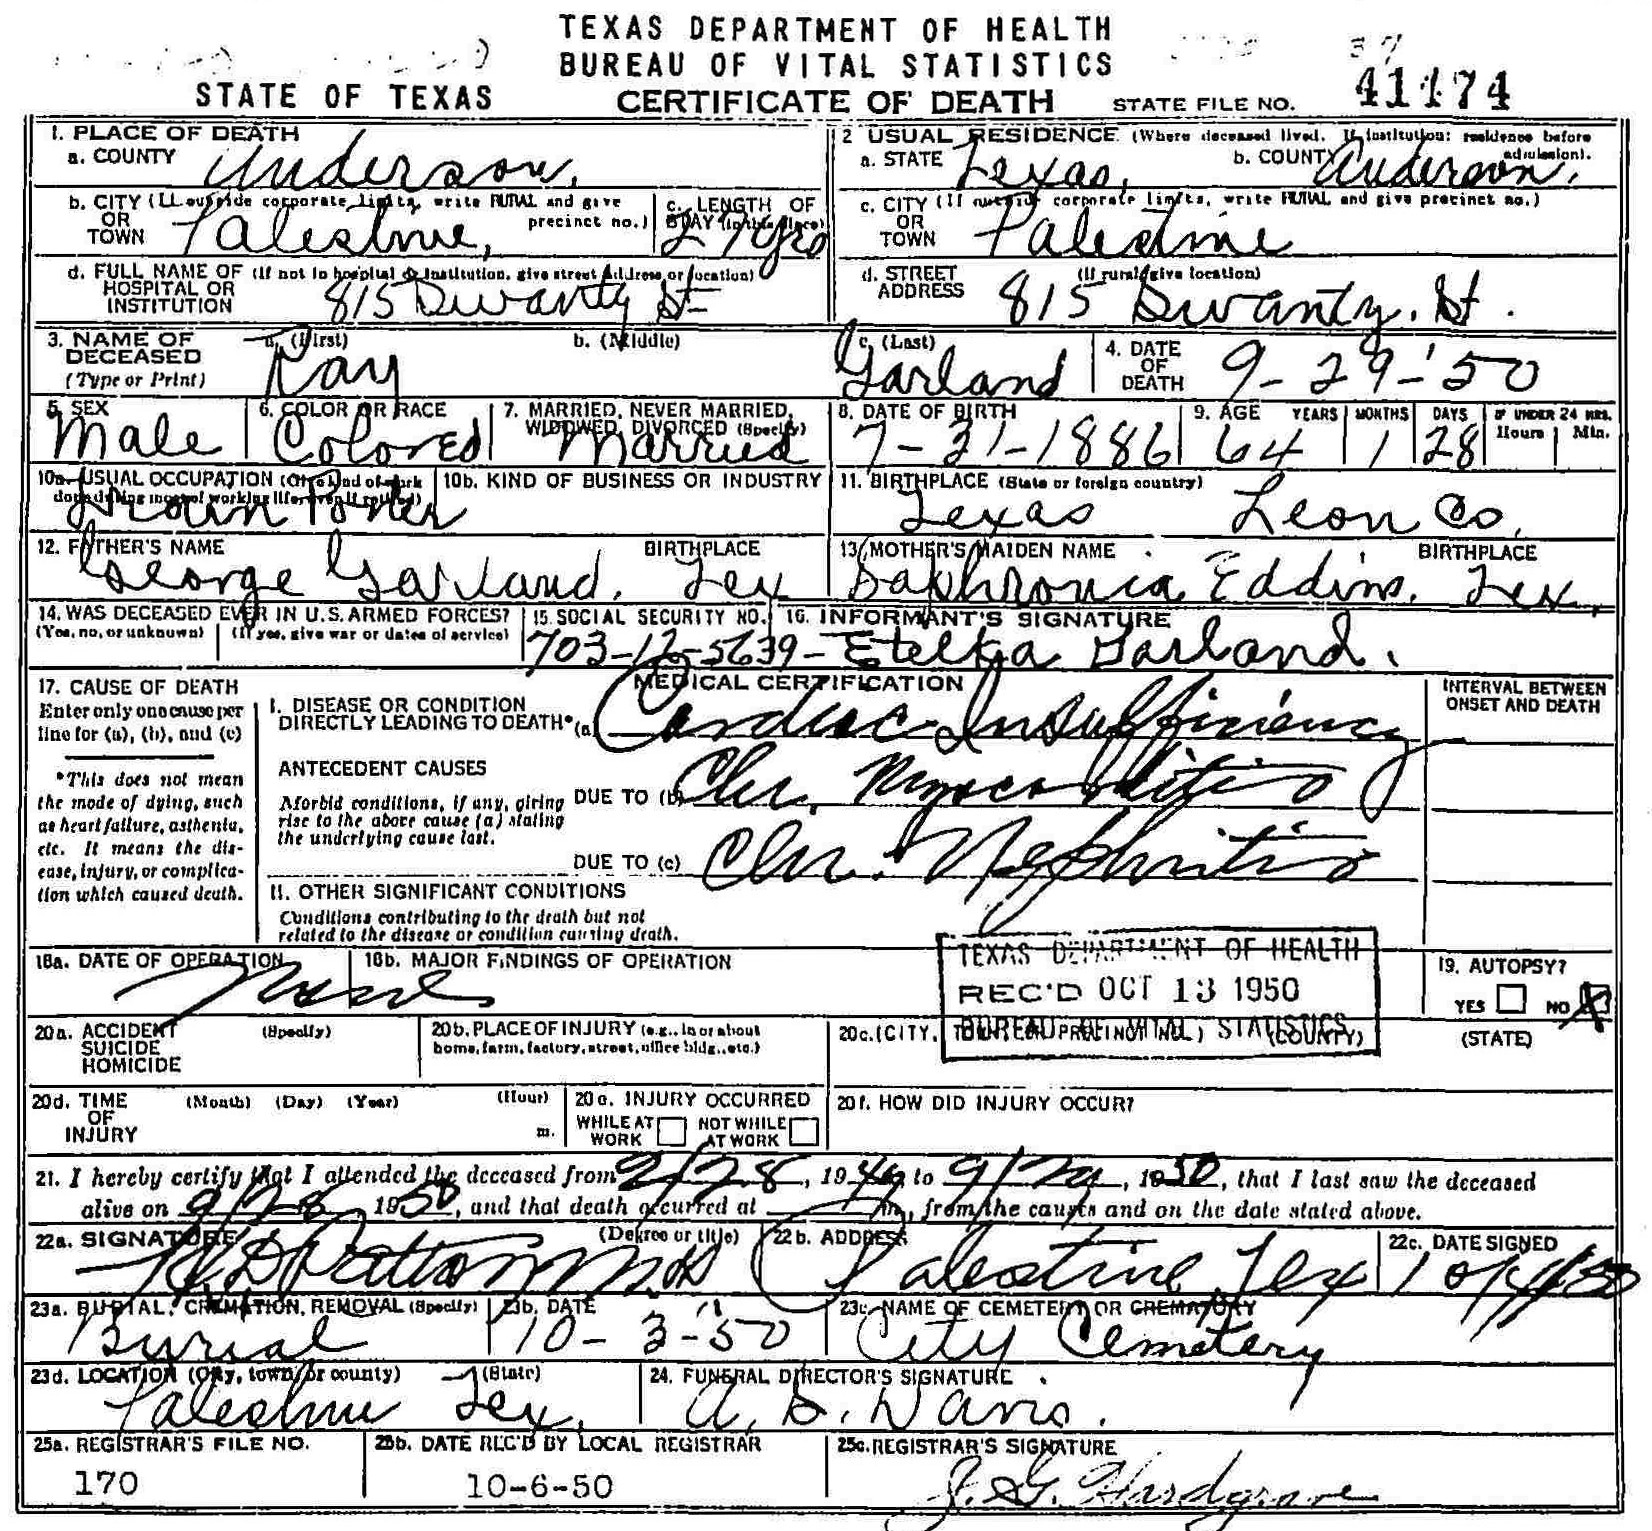 TEXAS DEPARTMENT OF HEALTH
BUREAU OF VITAL STATISTICS
STATE OF TEXAS CERTIFICATE OF DEATH STATE FILE NO. 41174
1. PLACE OF DEATH
a. COUNTY Anderson.
2 USUAL RESIDENCE (Where deceased lived. If institution: residence before admission).
a. STATE Texas, b. COUNTY Anderson.
b. CITY (If outside corporate limits, write RURAL and give precinct no.) OR TOWN Palestine,
c. LENGTH OF STAY (in this place) 27 yrs
c. CITY (If outside corporate limits, write RURAL and give precinct no.) OR TOWN Palestine
d. FULL NAME OF HOSPITAL OR INSTITUTION (If not in hospital or institution, give street address or location) 815 Swanty St
d. STREET ADDRESS (If rural, give location) 815 Swanty. St.
3. NAME OF DECEASED (Type or Print) a. (First) Ray b. (Middle) c. (Last) Garland
4. DATE OF DEATH 9-29-'50
5. SEX Male
6. COLOR OR RACE Colored
7. MARRIED, NEVER MARRIED, WIDOWED, DIVORCED (Specify) Married
8. DATE OF BIRTH 7-31-1886
9. AGE YEARS 64 MONTHS 1 DAYS 28 IF UNDER 24 HRS. Hours Min.
10a. USUAL OCCUPATION (Give kind of work done during most of working life, even if retired) Porter
10b. KIND OF BUSINESS OR INDUSTRY
11. BIRTHPLACE (State or foreign country) Texas Leon Co.
12. FATHER'S NAME George Garland. BIRTHPLACE Tex
13. MOTHER'S MAIDEN NAME Saphronia Eddins. BIRTHPLACE Tex.
14. WAS DECEASED EVER IN U.S. ARMED FORCES?
(Yes, no, or unknown) (If yes, give war or dates of service)
15. SOCIAL SECURITY NO. 703-12-5639-
16. INFORMANT'S SIGNATURE Etelka Garland.
17. CAUSE OF DEATH
Enter only one cause per line for (a), (b), and (c)
*This does not mean the mode of dying, such as heart failure, asthenia, etc. It means the disease, injury, or complication which caused death.
MEDICAL CERTIFICATION
INTERVAL BETWEEN ONSET AND DEATH
I. DISEASE OR CONDITION DIRECTLY LEADING TO DEATH* (a) Cardiac Insufficiency
ANTECEDENT CAUSES
Morbid conditions, if any, giving rise to the above cause (a) stating the underlying cause last.
DUE TO (b) Chr. Myocarditis
DUE TO (c) Chr. Nephritis
II. OTHER SIGNIFICANT CONDITIONS
Conditions contributing to the death but not related to the disease or condition causing death.
18a. DATE OF OPERATION None
18b. MAJOR FINDINGS OF OPERATION
TEXAS DEPARTMENT OF HEALTH
REC'D OCT 13 1950
BUREAU OF VITAL STATISTICS
19. AUTOPSY?
YES NO X
20a. ACCIDENT SUICIDE HOMICIDE (Specify)
20b. PLACE OF INJURY (e.g., in or about home, farm, factory, street, office bldg., etc.)
20c. (CITY, TOWN, OR PRECINCT NO.) (COUNTY) (STATE)
20d. TIME OF INJURY (Month) (Day) (Year) (Hour) m.
20e. INJURY OCCURRED
WHILE AT WORK NOT WHILE AT WORK
20f. HOW DID INJURY OCCUR?
21. I hereby certify that I attended the deceased from 9/28, 19 to 9/29, 1950, that I last saw the deceased
alive on 9/28, 1950, and that death occurred at m., from the causes and on the date stated above.
22a. SIGNATURE (Degree or title) Patton M.D.
22b. ADDRESS Palestine Tex
22c. DATE SIGNED 10/4/50
23a. BURIAL, CREMATION, REMOVAL (Specify) Burial
23b. DATE 10-3-'50
23c. NAME OF CEMETERY OR CREMATORY City Cemetery
23d. LOCATION (City, town, or county) (State) Palestine Tex.
24. FUNERAL DIRECTOR'S SIGNATURE A. D. Davis.
25a. REGISTRAR'S FILE NO. 170
25b. DATE REC'D BY LOCAL REGISTRAR 10-6-50
25c. REGISTRAR'S SIGNATURE J. G. Hardgrave